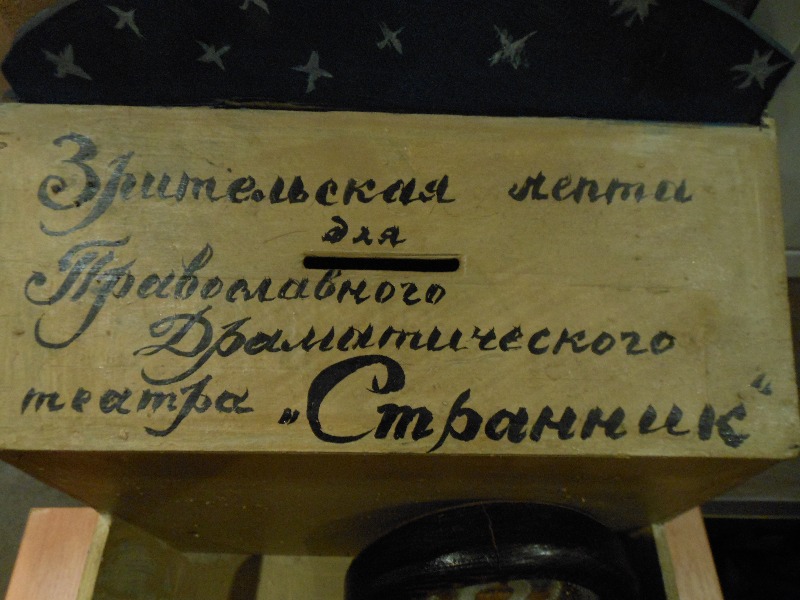 Зрительская лепта
для
Православного
Драматического
театра „Странник“